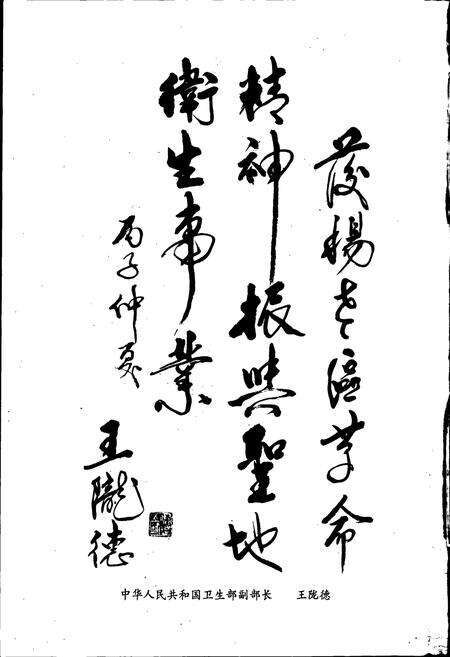 发扬老區革命
精神振興聖地
衛生事業
丙子仲夏
王隴德
中华人民共和国卫生部副部长 王陇德